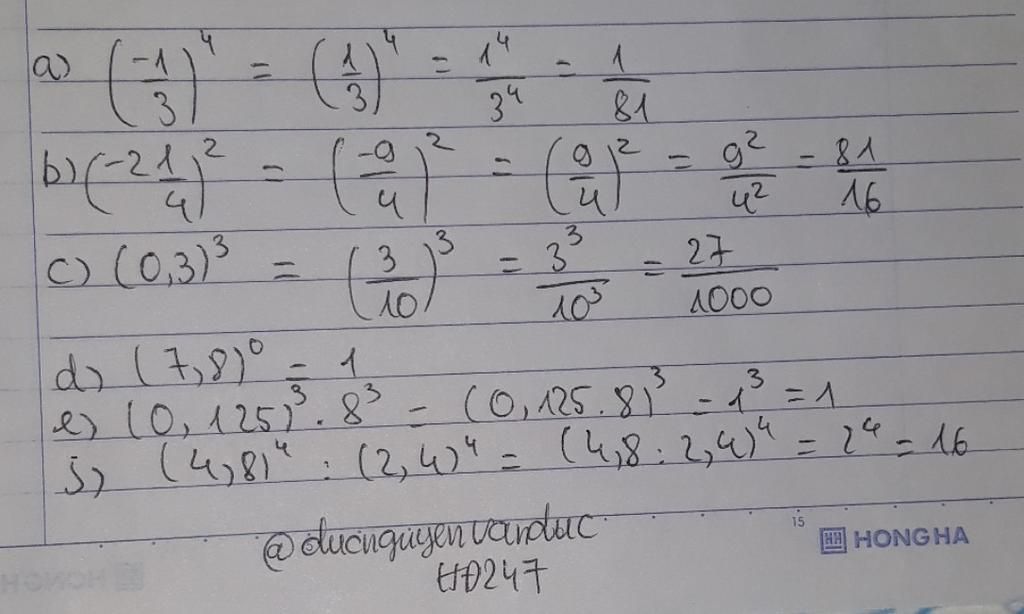 a) (-1/3)^4 = (1/3)^4 = 1^4/3^4 = 1/81
b) (-2 1/4)^2 = (-9/4)^2 = (9/4)^2 = 9^2/4^2 = 81/16
c) (0,3)^3 = (3/10)^3 = 3^3/10^3 = 27/1000
d) (7,8)^0 = 1
e) (0,125)^3 . 8^3 = (0,125.8)^3 = 1^3 = 1
j) (4,8)^4 : (2,4)^4 = (4,8:2,4)^4 = 2^4 = 16
@ducnguyenvanduc
HĐ247
15
HH HONG HA